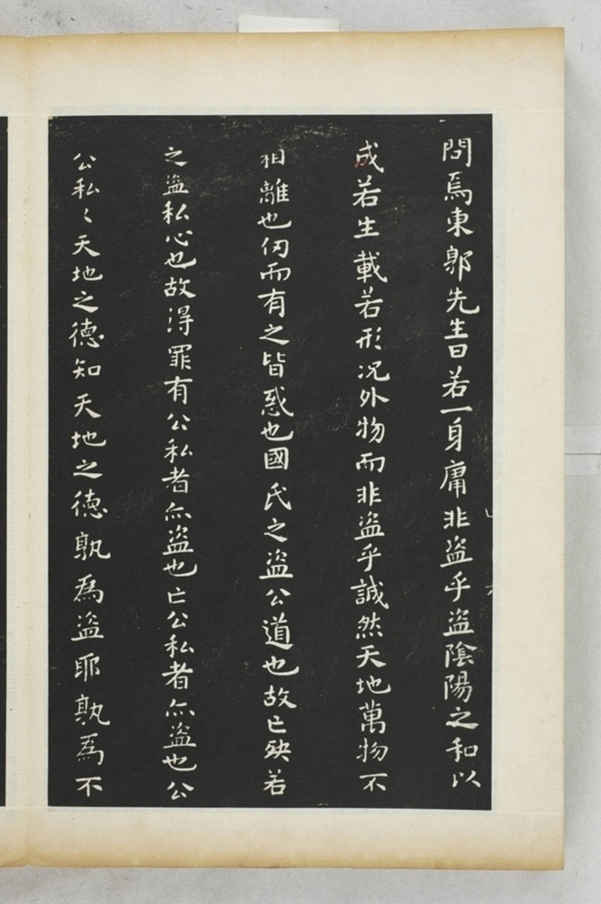 問焉東郭先生曰若一身庸非盜乎盜陰陽之和以
成若生載若形况外物而非盜乎誠然天地萬物不
相離也仞而有之皆惑也國氏之盜公道也故亡殃若
之盜私心也故得罪有公私者亦盜也亡公私者亦盜也公
公私〻天地之德知天地之德孰為盜耶孰為不